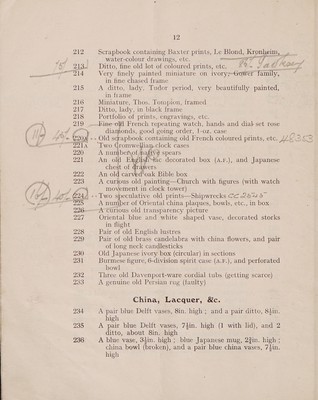 12
212 Scrapbook containing Baxter prints, Le Blond, Kronheim,
water-colour drawings, etc.
213 Ditto, fine old lot of coloured prints, etc.
214 Very finely painted miniature on ivory, Gower family,
in fine chased frame
215 A ditto, lady, Tudor period, very beautifully painted,
in frame
216 Miniature, Thos. Tompion, framed
217 Ditto, lady, in black frame
218 Portfolio of prints, engravings, etc.
219 Fine old French repeating watch, hands and dial set rose
diamonds, good going order, 1-oz. case
220 Old scrapbook containing old French coloured prints, etc. 48353
221A Two Cromwellian clock cases
220 A number of native spears
221 An old English decorated box (A.F.), and Japanese
chest of drawers
222 An old carved oak Bible box
223 A curious old painting—Church with figures (with watch
movement in clock tower)
224 Two speculative old prints—Shipwrecks
225 A number of Oriental china plaques, bowls, etc., in box
226 A curious old transparency picture
227 Oriental blue and white shaped vase, decorated storks
in flight
228 Pair of old English vases
229 Pair of old brass candelabra with china flowers, and pair
of long neck candlesticks
230 Old Japanese ivory box (circular) in sections
231 Burmese figure, 6-division spirit case (A.F.), and perforated
bowl
232 Three old Davenport-ware cordial tubs (getting scarce)
233 A genuine old Persian rug (faulty)
China, Lacquer, &c.
234 A pair blue Delft vases, 8in. high; and a pair ditto, 8½in.
high
235 A pair blue Delft vases, 7½in. high (1 with lid), and 2
ditto, about 8in. high
236 A blue vase, 3½in. high; blue Japanese mug, 2¾in. high;
china bowl (broken), and a pair blue china vases, 7½in.
high